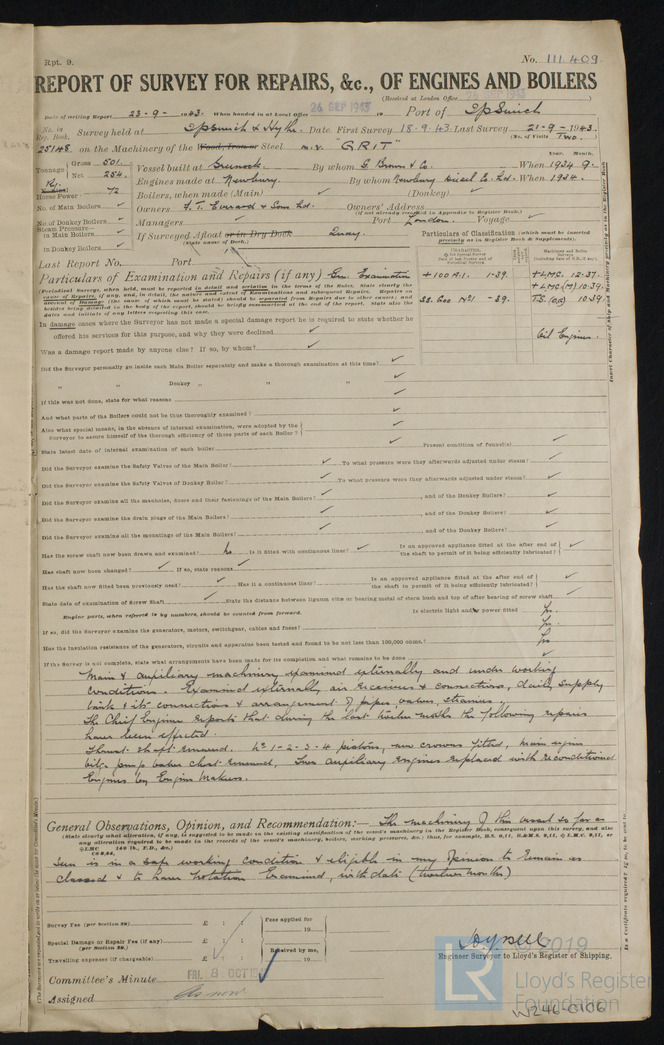 Rpt. 9.
No. 111409
REPORT OF SURVEY FOR REPAIRS, &c., OF ENGINES AND BOILERS
(Received at London Office
Date of writing Report 23-9-1943 When handed in at Local Office 26 SEP 1943 19 Port of Ipswich
No. in Reg. Book. Survey held at Ipswich & Hythe Date. First Survey 18.9.43 Last Survey 21-9-1943
(No. of Visits Two.
25148 on the Machinery of the Wood, Iron or Steel m.v. "GRIT"
Year. Month.
Tonnage Gross 501. Vessel built at Greenock. By whom G. Brown & Co. When 1934 9.
Net 254. Engines made at Newbury. By whom Newbury Diesel Co. Ltd. When 1934.
Horse Power 72 Boilers, when made (Main) (Donkey)
No. of Main Boilers Owners F.T. Everard & Sons Ltd. Owners' Address
(if not already recorded in Appendix to Register Book.)
No. of Donkey Boilers Managers Port London. Voyage
Steam Pressure— in Main Boilers If Surveyed Afloat or in Dry Dock Quay.
(State name of Dock.)
in Donkey Boilers
Particulars of Classification (which must be inserted precisely as in Register Book & Supplements).
Last Report No. Port
Particulars of Examination and Repairs (if any) Gen. Examination
+100 A.1. 1.39. +LMC. 12.37.
+LMC (M) 10.39.
SS. Goo No1 -39. T.S. (OG) 10.39.
Oil Engines.
(Periodical Surveys, when held, must be reported in detail and seriatim in the terms of the Rules. State clearly the cause of Repairs, if any, and, in detail, the nature and extent of Examinations and subsequent Repairs. Repairs on account of Damage (the cause of which must be stated) should be separated from Repairs due to other causes; and besides being detailed in the body of the report, should be briefly summarised at the end of the report. State also the dates and initials of any letters respecting this case.
In damage cases where the Surveyor has not made a special damage report he is required to state whether he
offered his services for this purpose, and why they were declined
Was a damage report made by anyone else? If so, by whom?
Did the Surveyor personally go inside each Main Boiler separately and make a thorough examination at this time?
" " Donkey " " "
If this was not done, state for what reasons
And what parts of the Boilers could not be thus thoroughly examined?
Also what special means, in the absence of internal examination, were adopted by the
Surveyor to assure himself of the thorough efficiency of those parts of each Boiler?
State latest date of internal examination of each boiler Present condition of funnel(s)
Did the Surveyor examine the Safety Valves of the Main Boiler? To what pressure were they afterwards adjusted under steam?
Did the Surveyor examine the Safety Valves of Donkey Boiler? To what pressure were they afterwards adjusted under steam?
Did the Surveyor examine all the manholes, doors and their fastenings of the Main Boilers? , and of the Donkey Boilers?
Did the Surveyor examine the drain plugs of the Main Boilers? , and of the Donkey Boilers?
Did the Surveyor examine all the mountings of the Main Boilers? , and of the Donkey Boilers?
Has the screw shaft now been drawn and examined? No Is it fitted with continuous liner? Is an approved appliance fitted at the after end of the shaft to permit of it being efficiently lubricated?
Has shaft now been changed? If so, state reasons
Has the shaft now fitted been previously used? Has it a continuous liner? Is an approved appliance fitted at the after end of the shaft to permit of it being efficiently lubricated?
State date of examination of Screw Shaft State the distance between lignum vitæ or bearing metal of stern bush and top of after bearing of screw shaft
Engine parts, when referred to by numbers, should be counted from forward. Is electric light and/or power fitted
If so, did the Surveyor examine the generators, motors, switchgear, cables and fuses?
Has the insulation resistance of the generators, circuits and apparatus been tested and found to be not less than 100,000 ohms?
If the Survey is not complete, state what arrangements have been made for its completion and what remains to be done
Main & auxiliary machinery examined externally and under working
conditions. Examined externally air receivers & connections, daily supply
tank & its connections & arrangement of pipes valves, strainers.
The Chief Engineer reports that during the last twelve months the following repairs
have been effected.
Thrust shaft renewed. No 1-2-3-4 pistons, new crowns fitted, main engine
bilge pump valve chest renewed, Two auxiliary engines replaced with reconditioned
Engines by Engine Makers.
General Observations, Opinion, and Recommendation:— The machinery of this vessel so far as
(State clearly what alteration, if any, is suggested to be made in the existing classification of the vessel's machinery in the Register Book, consequent upon this survey, and also
seen is in a safe working condition & eligible in my opinion to remain as
classed & to have notation Examined, with date (twelve months)
Survey Fee (per Section 29) £ : : Fees applied for
19
Special Damage or Repair Fee (if any) (per Section 29.) £ : :
Received by me,
Travelling expenses (if chargeable) £ : : 19
Engineer Surveyor to Lloyd's Register of Shipping.
Committee's Minute FRI. 8 OCT 1943
Assigned As now
© 2019
LR
Lloyd's Register
Foundation
W246-0106